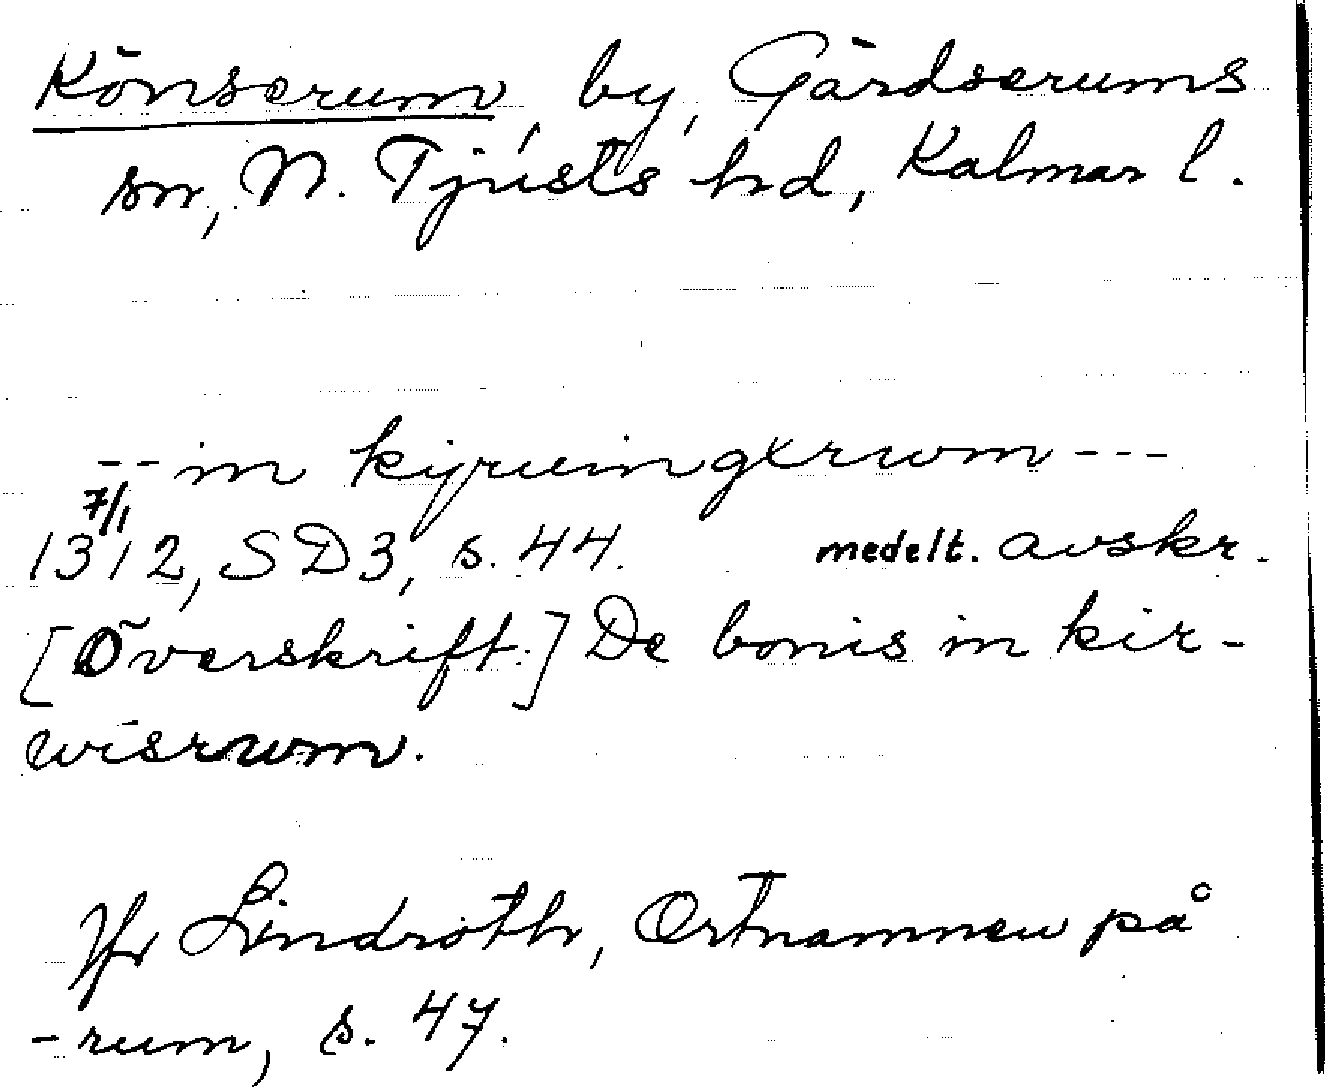 Könserum, by, Gärdserums
sn, N. Tjusts hd, Kalmar l.
-- in kyruingxrwm ---
7/1
1312, SD3, s. 44. medelt. avskr.
[Överskrift:] De bonis in kir-
wisrwm.
Jfr Lindroth, Ortnamnen på
-rum, s. 47.